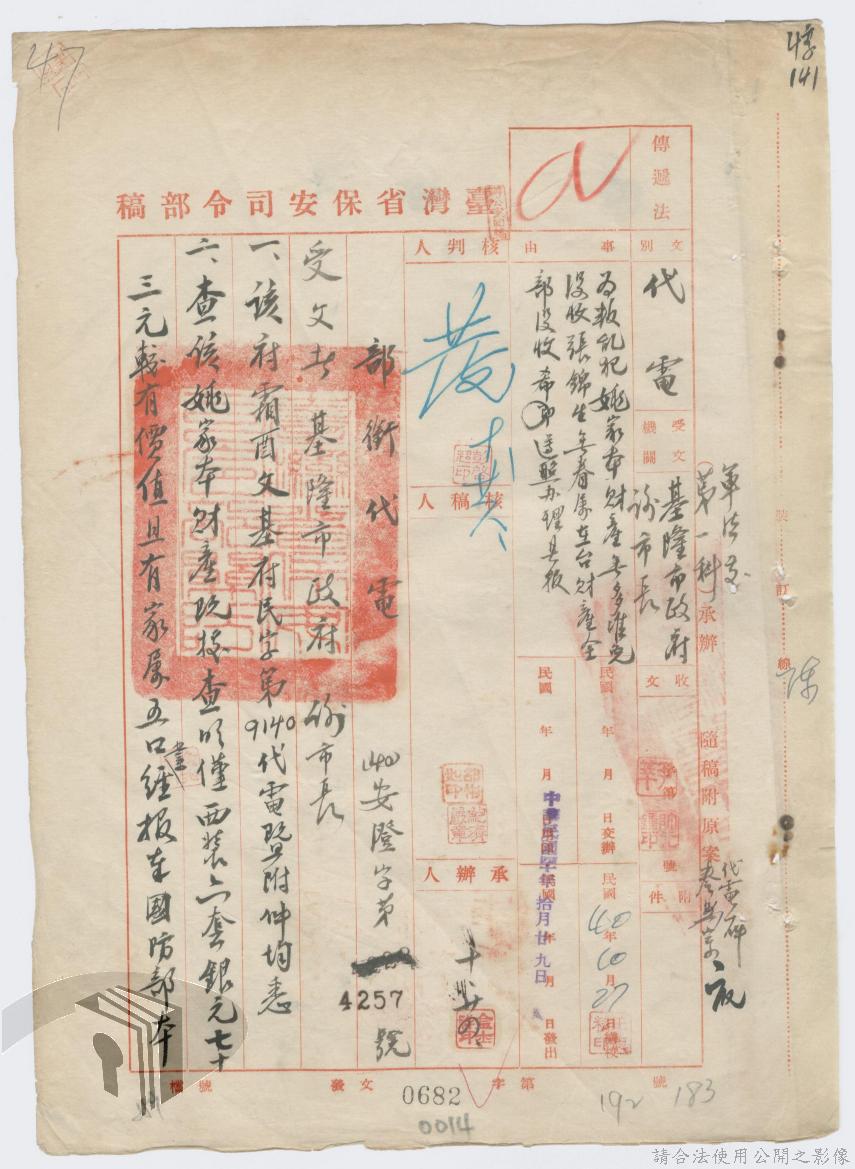 47
字
141
臺灣省保安司令部稿
傳遞法
文別
代電
受文機關
基隆市政府
市長
第一科
承辦
隨稿附原案
事由
為叛亂犯姚家本財產無多准免
沒收張錦生無眷屬在台財產全
部沒收希即遵照办理具报
收文
字第
號
附件
民國 年 月 日交辦
民國40年10月27日繕校
民國 年 月 日發出
中華民國四十年拾月廿九日
裝
訂
線
核判人
發
核稿人
承辦人
部衔代電
40安澄字第
4257
號
受文者基隆市政府 市長
一、該府霜酉文基府民字第9140代電暨附件均悉
二、查该姚家本財產既按查明僅西裝六套銀元七十
三元較有價值且有家屬五口經报奉國防部本
檔號
發文
字第
號
0682
0014
192
183
請合法使用公開之影像